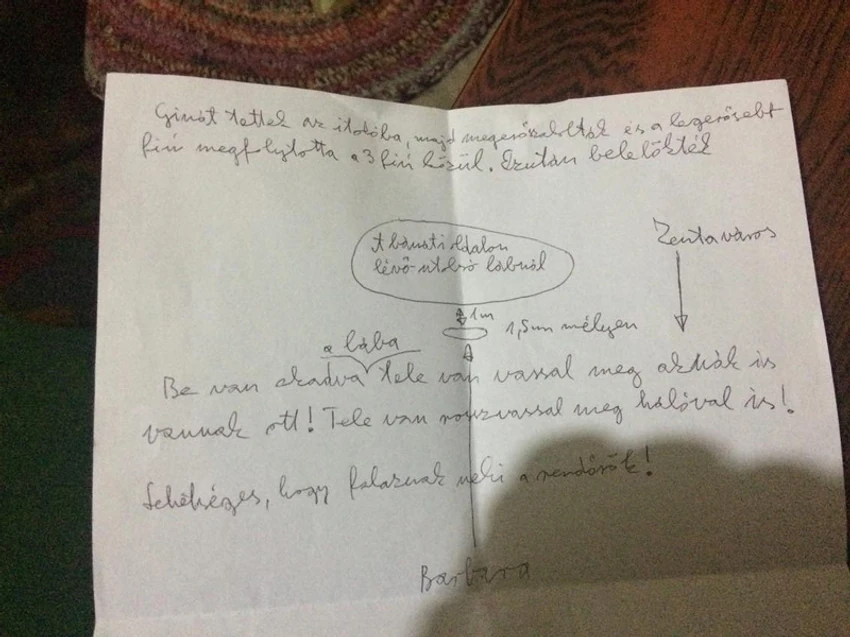 Ginát tettek az itolóba, majd megerőszakolták és a legerősebt
fiú megfojtotta a 3 fiú közül. Ezután belelökték
A bánáti oldalon
lévő utolsó lábnál
Zentaváros
1m
1,5m mélyen
a lába
Be van akadva tele van vassal meg aknák is
vannak ott! Tele van rosszvassal meg hálóval is!
hogy falaznak neki a rendőrök!
Barbara